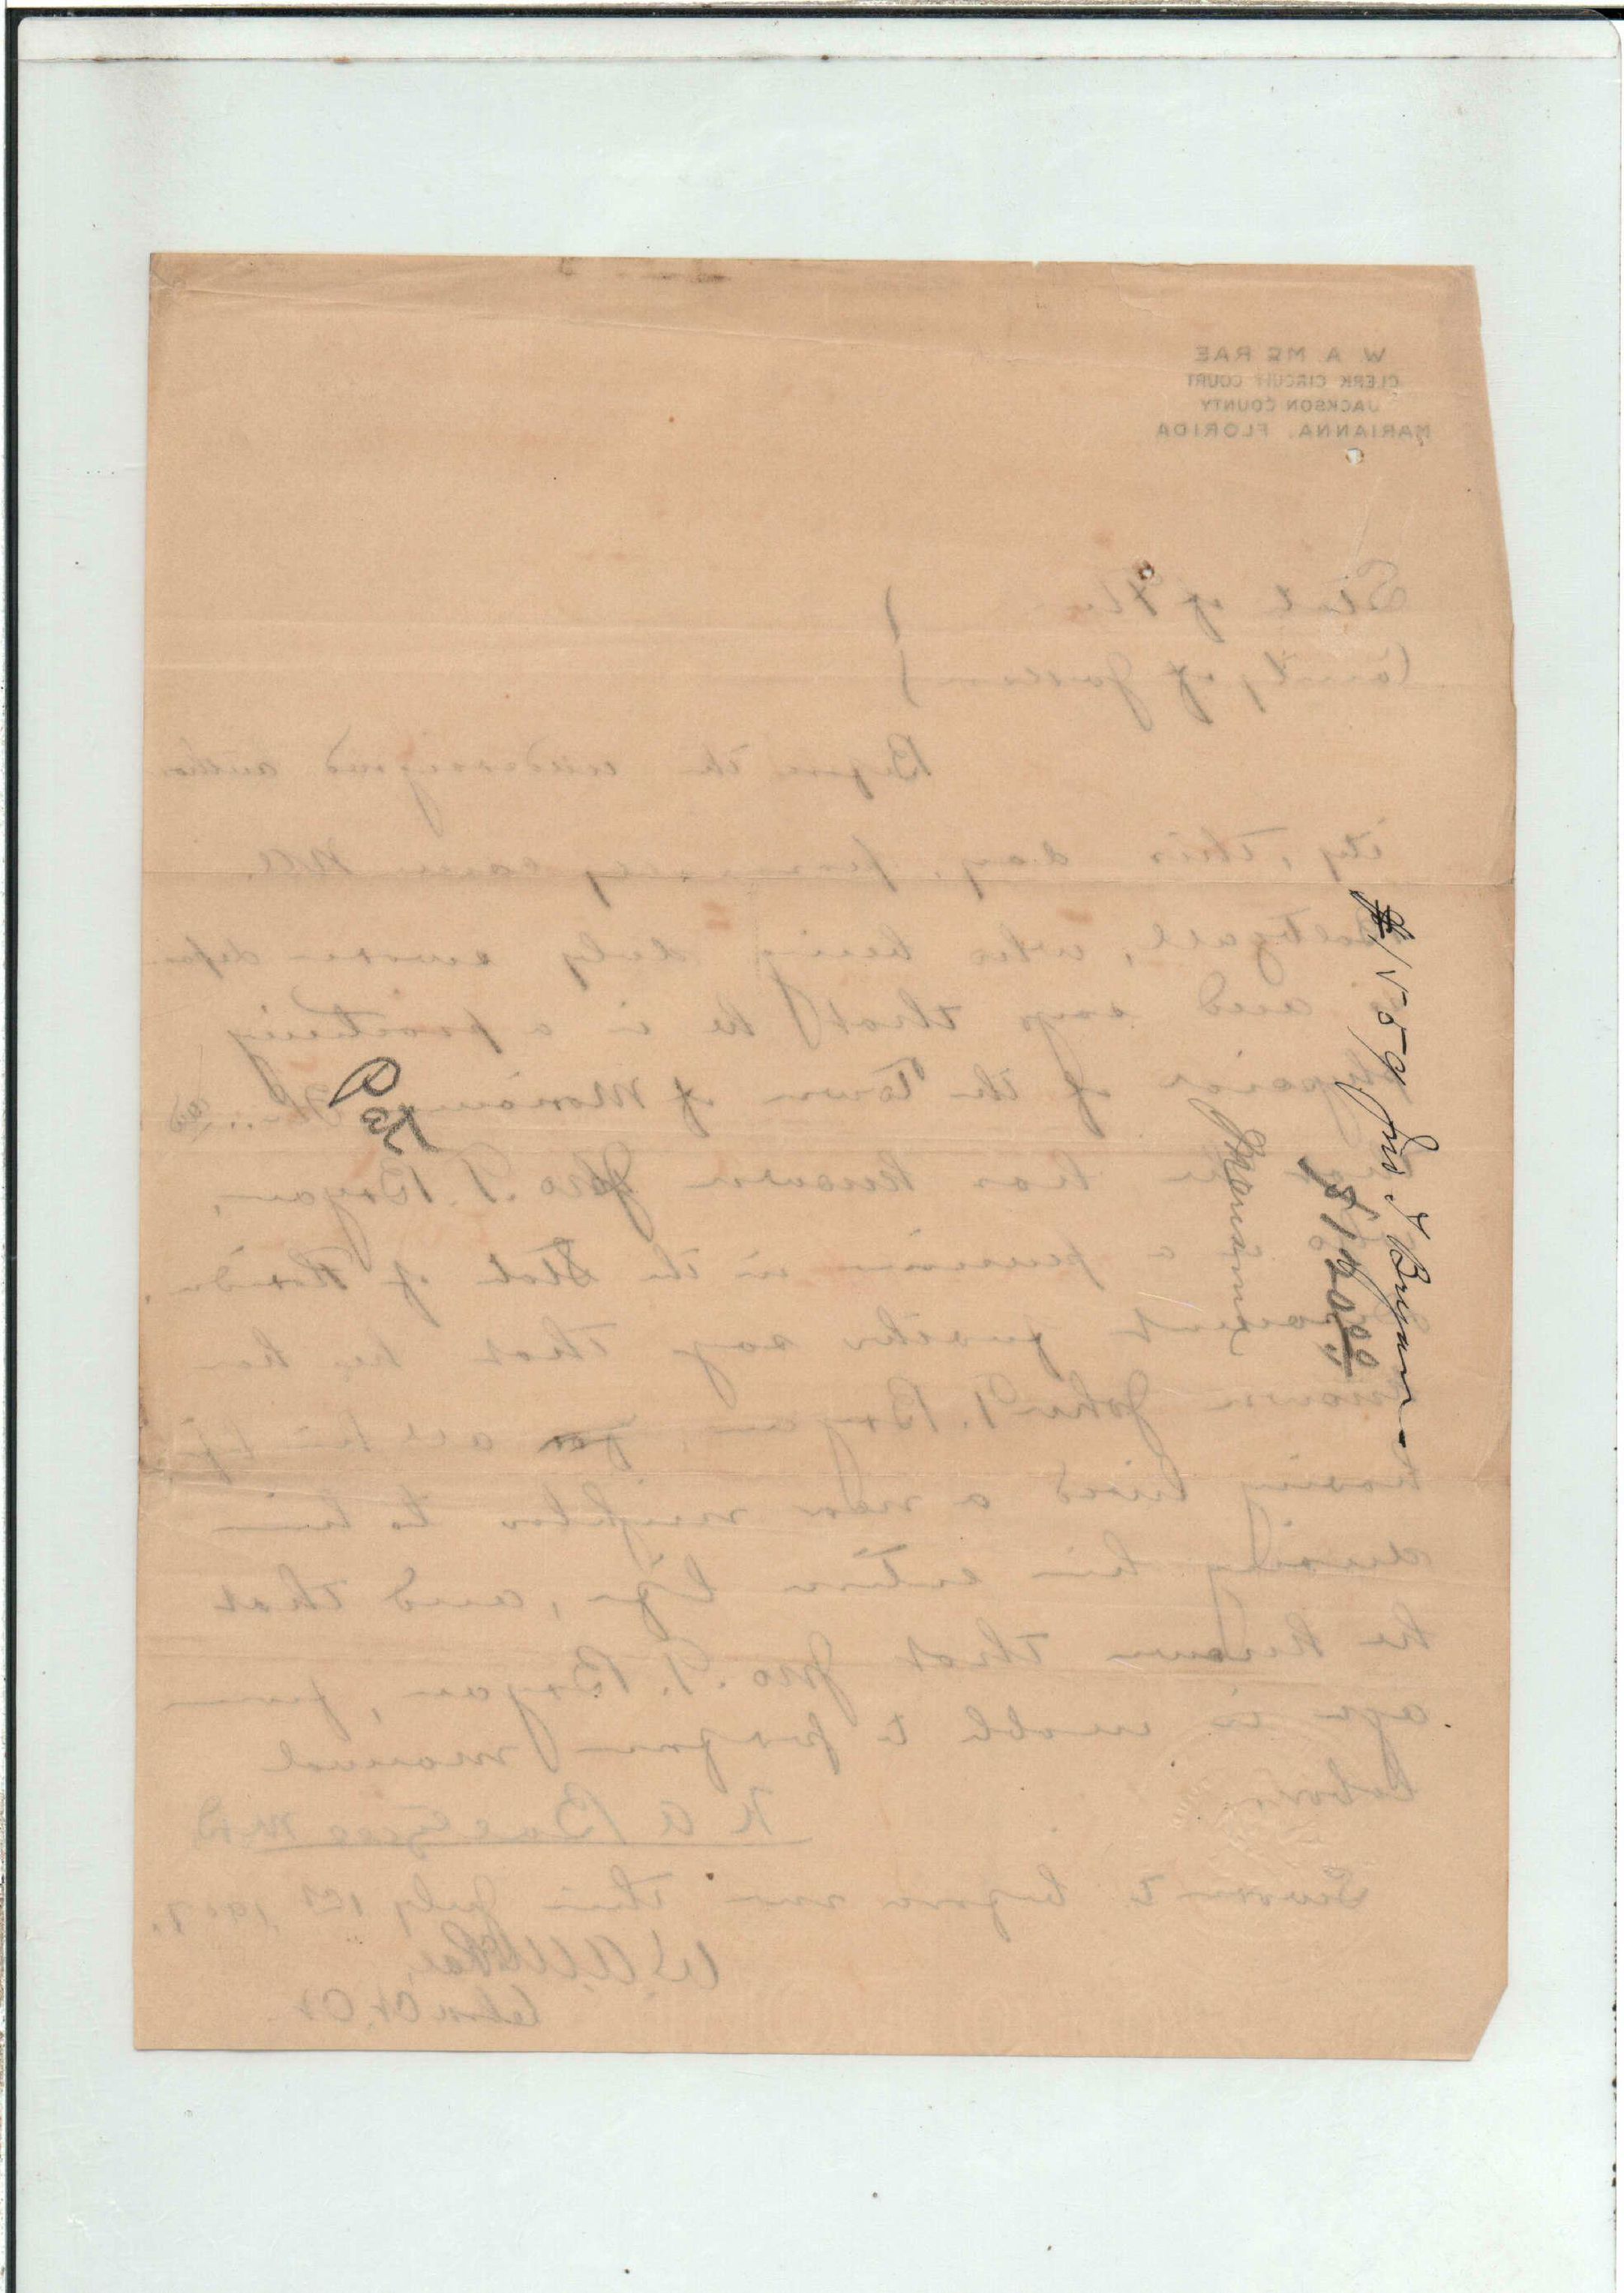 W. A. McRAE
CLERK CIRCUIT COURT
JACKSON COUNTY
MARIANNA, FLORIDA
State of Fla
County of Jackson
Before the undersigned author
ity, this day, personally came N.A.
Baltzell, who being duly sworn depo
and says that he is a practicing
physician of the Town of Marianna
that he has known Jno. T. Bryan,
a pensioner in the State of Florida.
Affiant further says that he, has
known John T. Bryan, for all his life
having lived a near neighbor to him
during his entire life, and that
he knows that Jno. T. Bryan, from
age is unable to perform manual
labor.
N A Baltzell MD
Sworn to before me this July 1st 1907.
W. A. McRae,
Clerk Ct. Ct.
Jno T Bryan
Marianna
$120.00